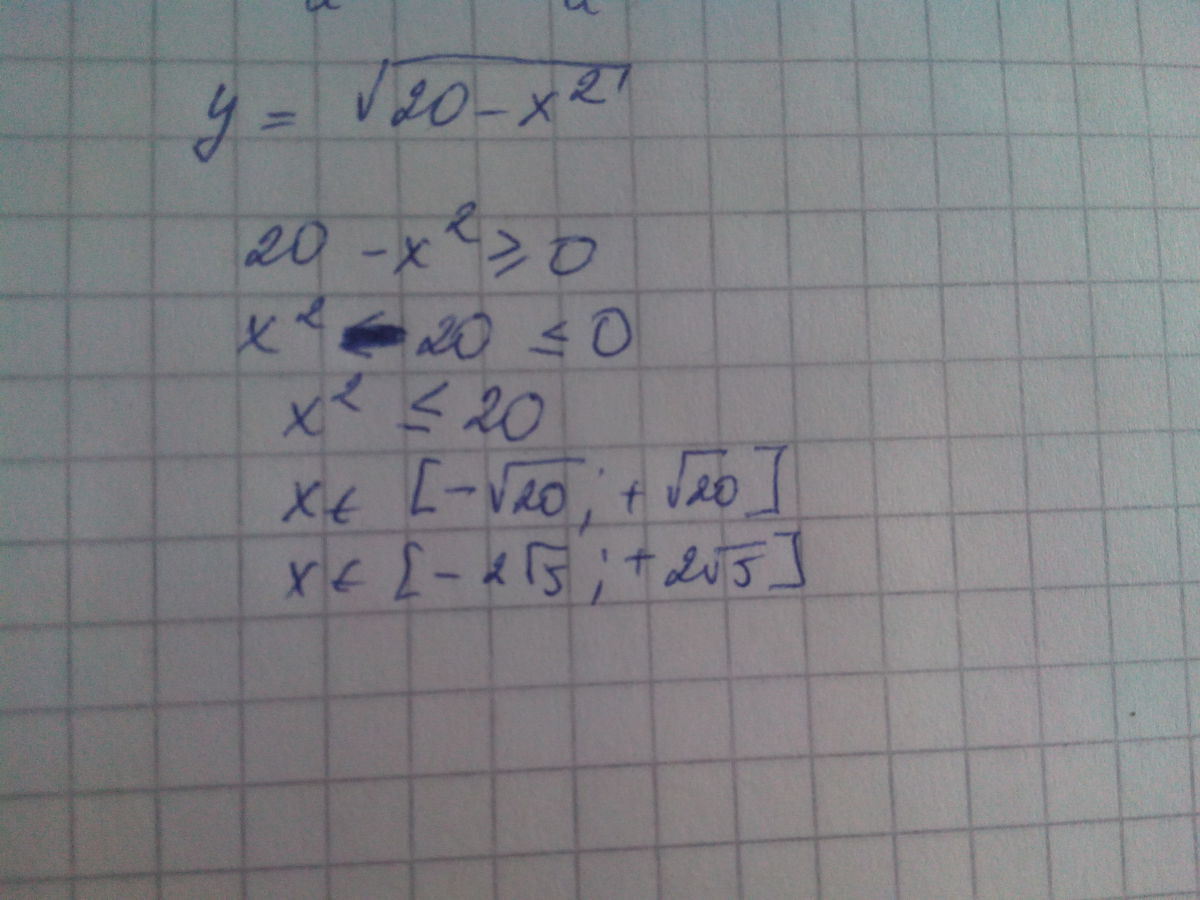 y = √(20 - x²)
20 - x² ≥ 0
x² - 20 ≤ 0
x² ≤ 20
x ∈ [-√20 ; +√20]
x ∈ [-2√5 ; +2√5]